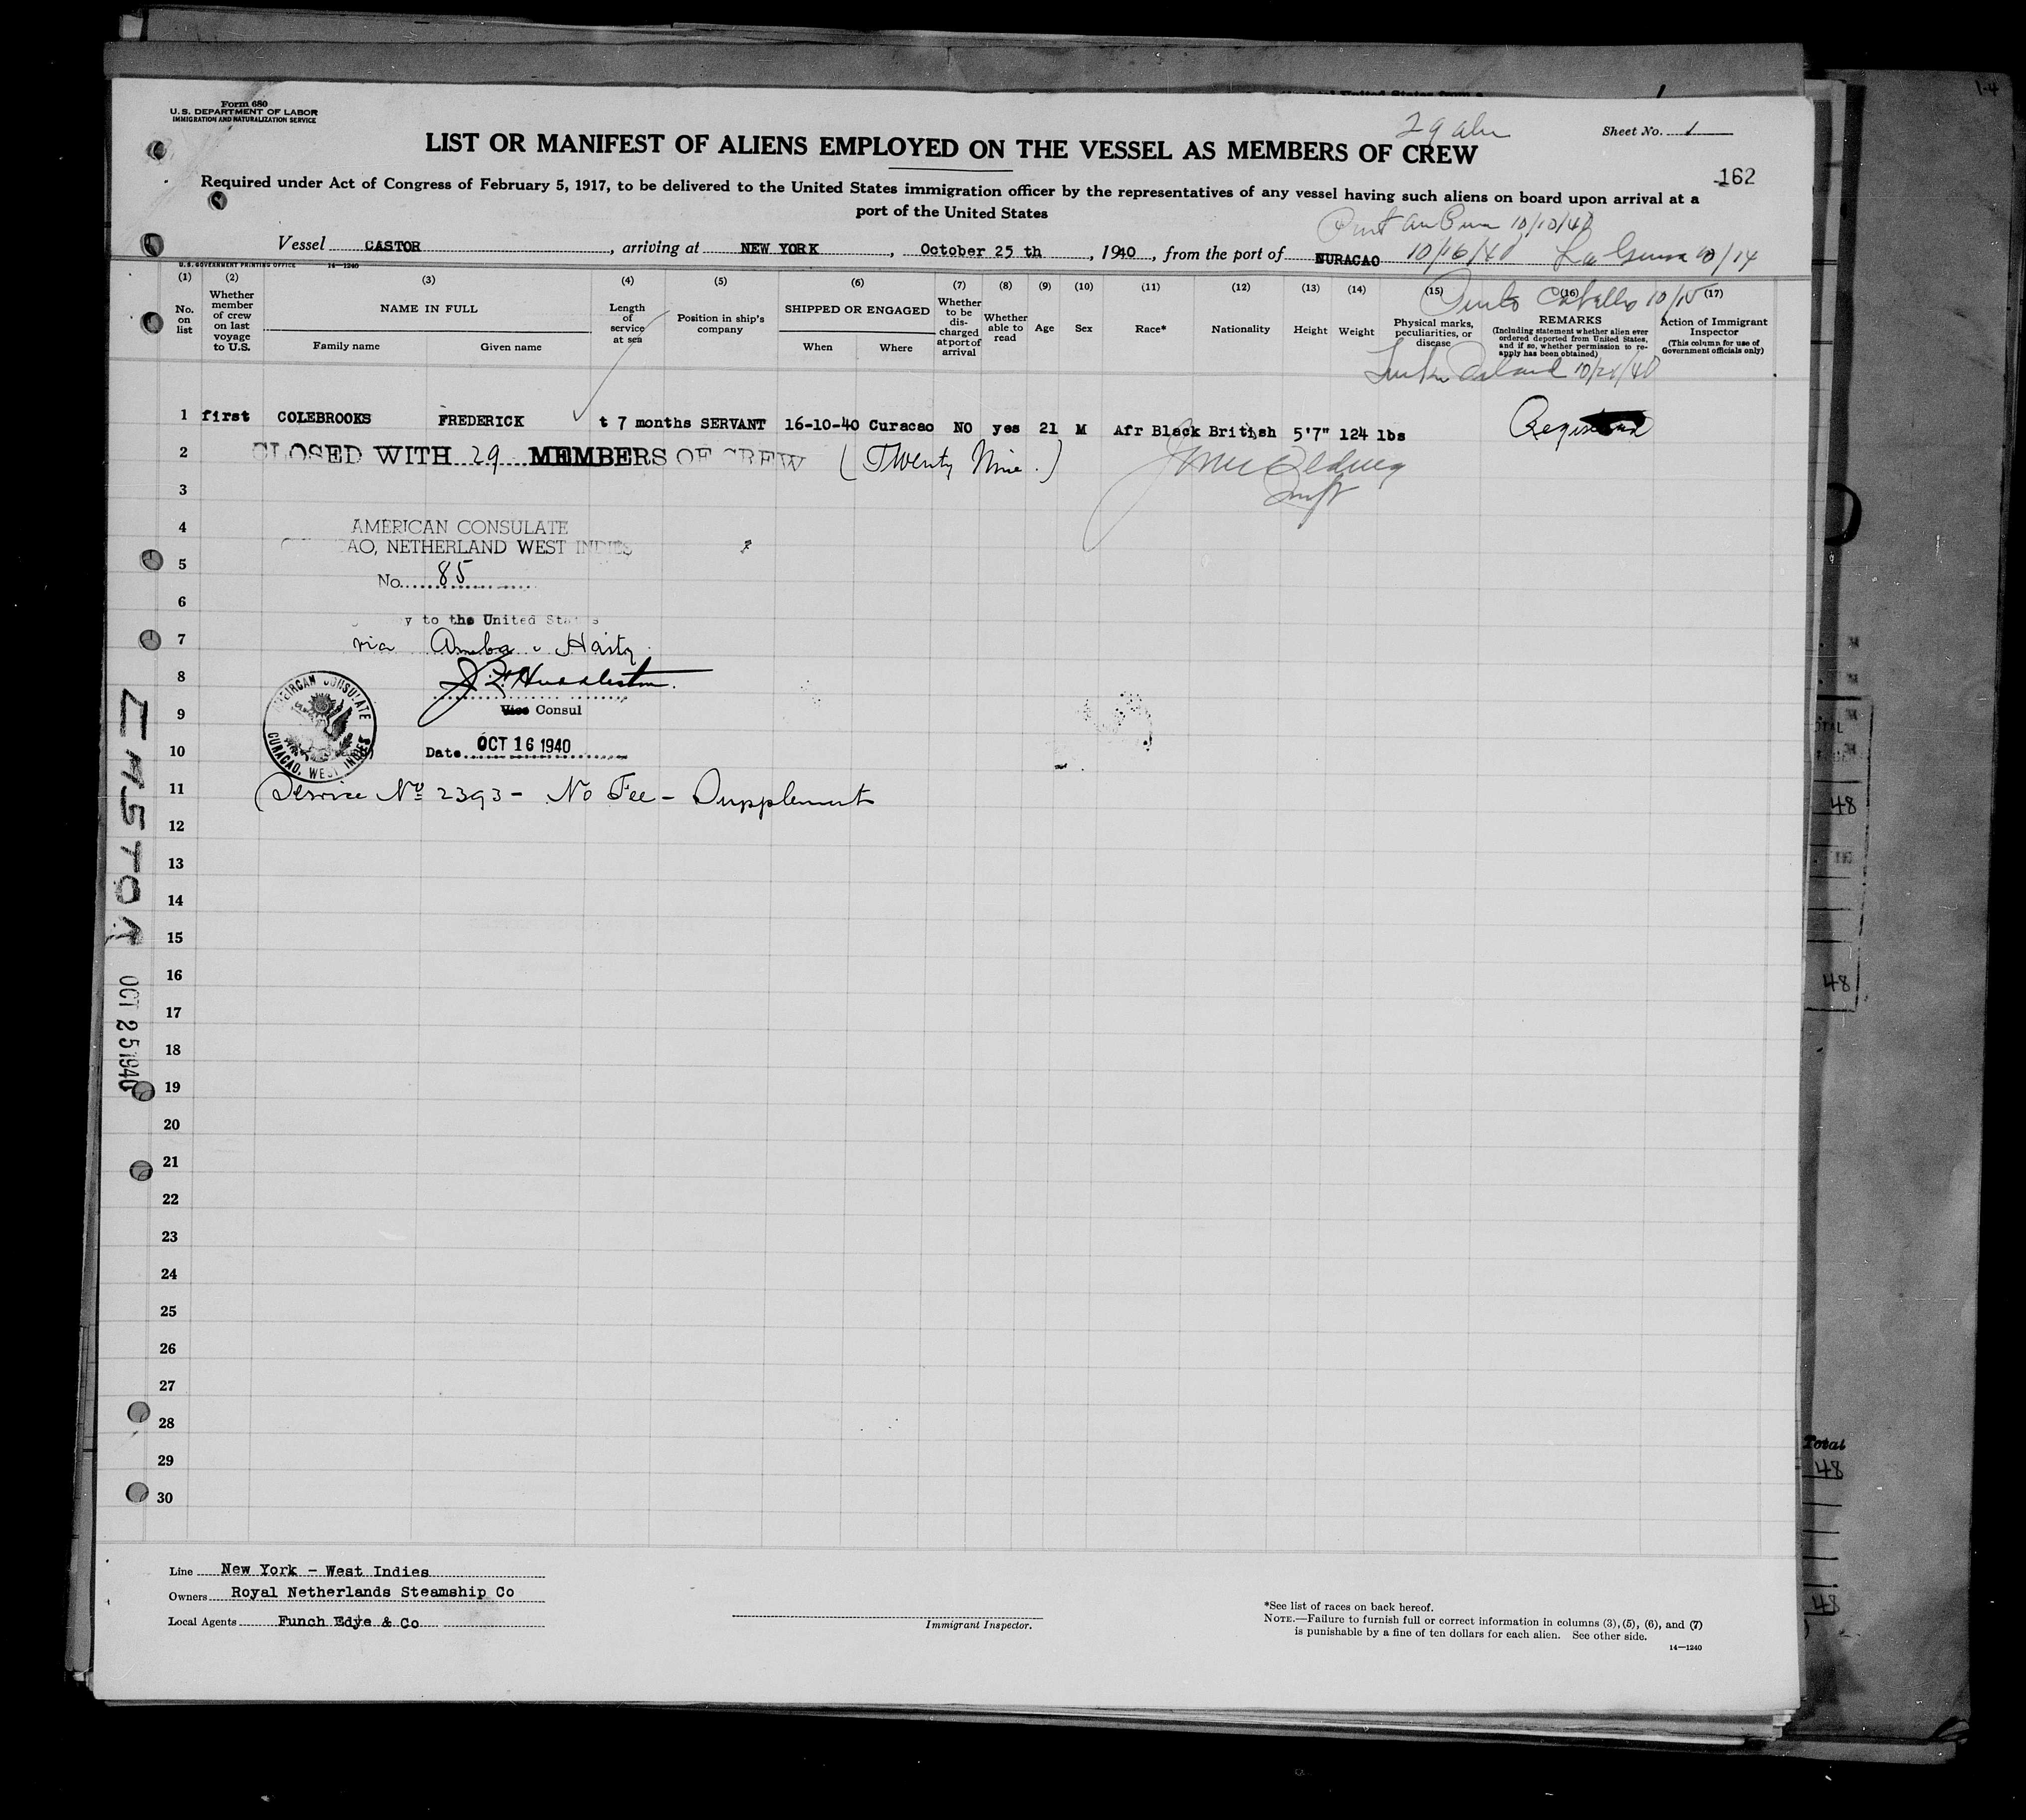 Form 680
U.S. DEPARTMENT OF LABOR
IMMIGRATION AND NATURALIZATION SERVICE
Sheet No. 1
LIST OR MANIFEST OF ALIENS EMPLOYED ON THE VESSEL AS MEMBERS OF CREW
162
Required under Act of Congress of February 5, 1917, to be delivered to the United States immigration officer by the representatives of any vessel having such aliens on board upon arrival at a
port of the United States
10/10/40
Vessel CASTOR, arriving at NEW YORK, October 25 th, 1940, from the port of CURACAO 10/16/40 La Guira 10/14
U.S. GOVERNMENT PRINTING OFFICE 14—1240
Puerto Cabello 10/15
(1) No. on list
(2) Whether member of crew on last voyage to U.S.
(3) NAME IN FULL
Family name
Given name
(4) Length of service at sea
(5) Position in ship's company
(6) SHIPPED OR ENGAGED
When
Where
(7) Whether to be discharged at port of arrival
(8) Whether able to read
(9) Age
(10) Sex
(11) Race*
(12) Nationality
(13) Height
(14) Weight
(15) Physical marks, peculiarities, or disease
(16) REMARKS
(Including statement whether alien ever ordered deported from United States, and if so, whether permission to reapply has been obtained)
(17) Action of Immigrant Inspector
(This column for use of Government officials only)
Turks Island 10/20/40
1 first COLEBROOKS FREDERICK t 7 months SERVANT 16-10-40 Curacao NO yes 21 M Afr Black British 5'7" 124 lbs
2 CLOSED WITH 29 MEMBERS OF CREW (Twenty Nine.)
3
4 AMERICAN CONSULATE
AO, NETHERLAND WEST INDIES
5
No. 85
6
y to the United States
7 via Aruba Haity
8 Huddleston
9 Vice Consul
AMERICAN CONSULATE
CURACAO, WEST INDIES
10 Date OCT 16 1940
11 Service No 2393 - No Fee - Supplement
12
13
14
15
16
17
18
19
20
21
22
23
24
25
26
27
28
29
30
CASTOR
OCT 25 1940
Line New York - West Indies
Owners Royal Netherlands Steamship Co
Local Agents Funch Edye & Co
Immigrant Inspector.
*See list of races on back hereof.
NOTE.—Failure to furnish full or correct information in columns (3), (5), (6), and (7)
is punishable by a fine of ten dollars for each alien. See other side.
14—1240
48
48
Total
48
48